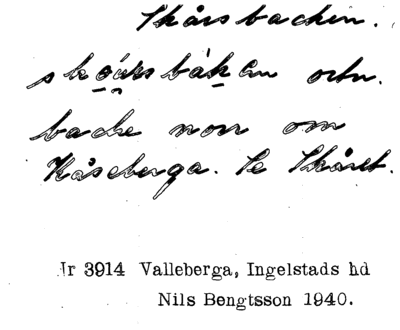 Skårsbacken.
skǫúrs båkan ortn.
backe norr om
Kåseberga. Se Skåret.
Nr 3914 Valleberga, Ingelstads hd
Nils Bengtsson 1940.